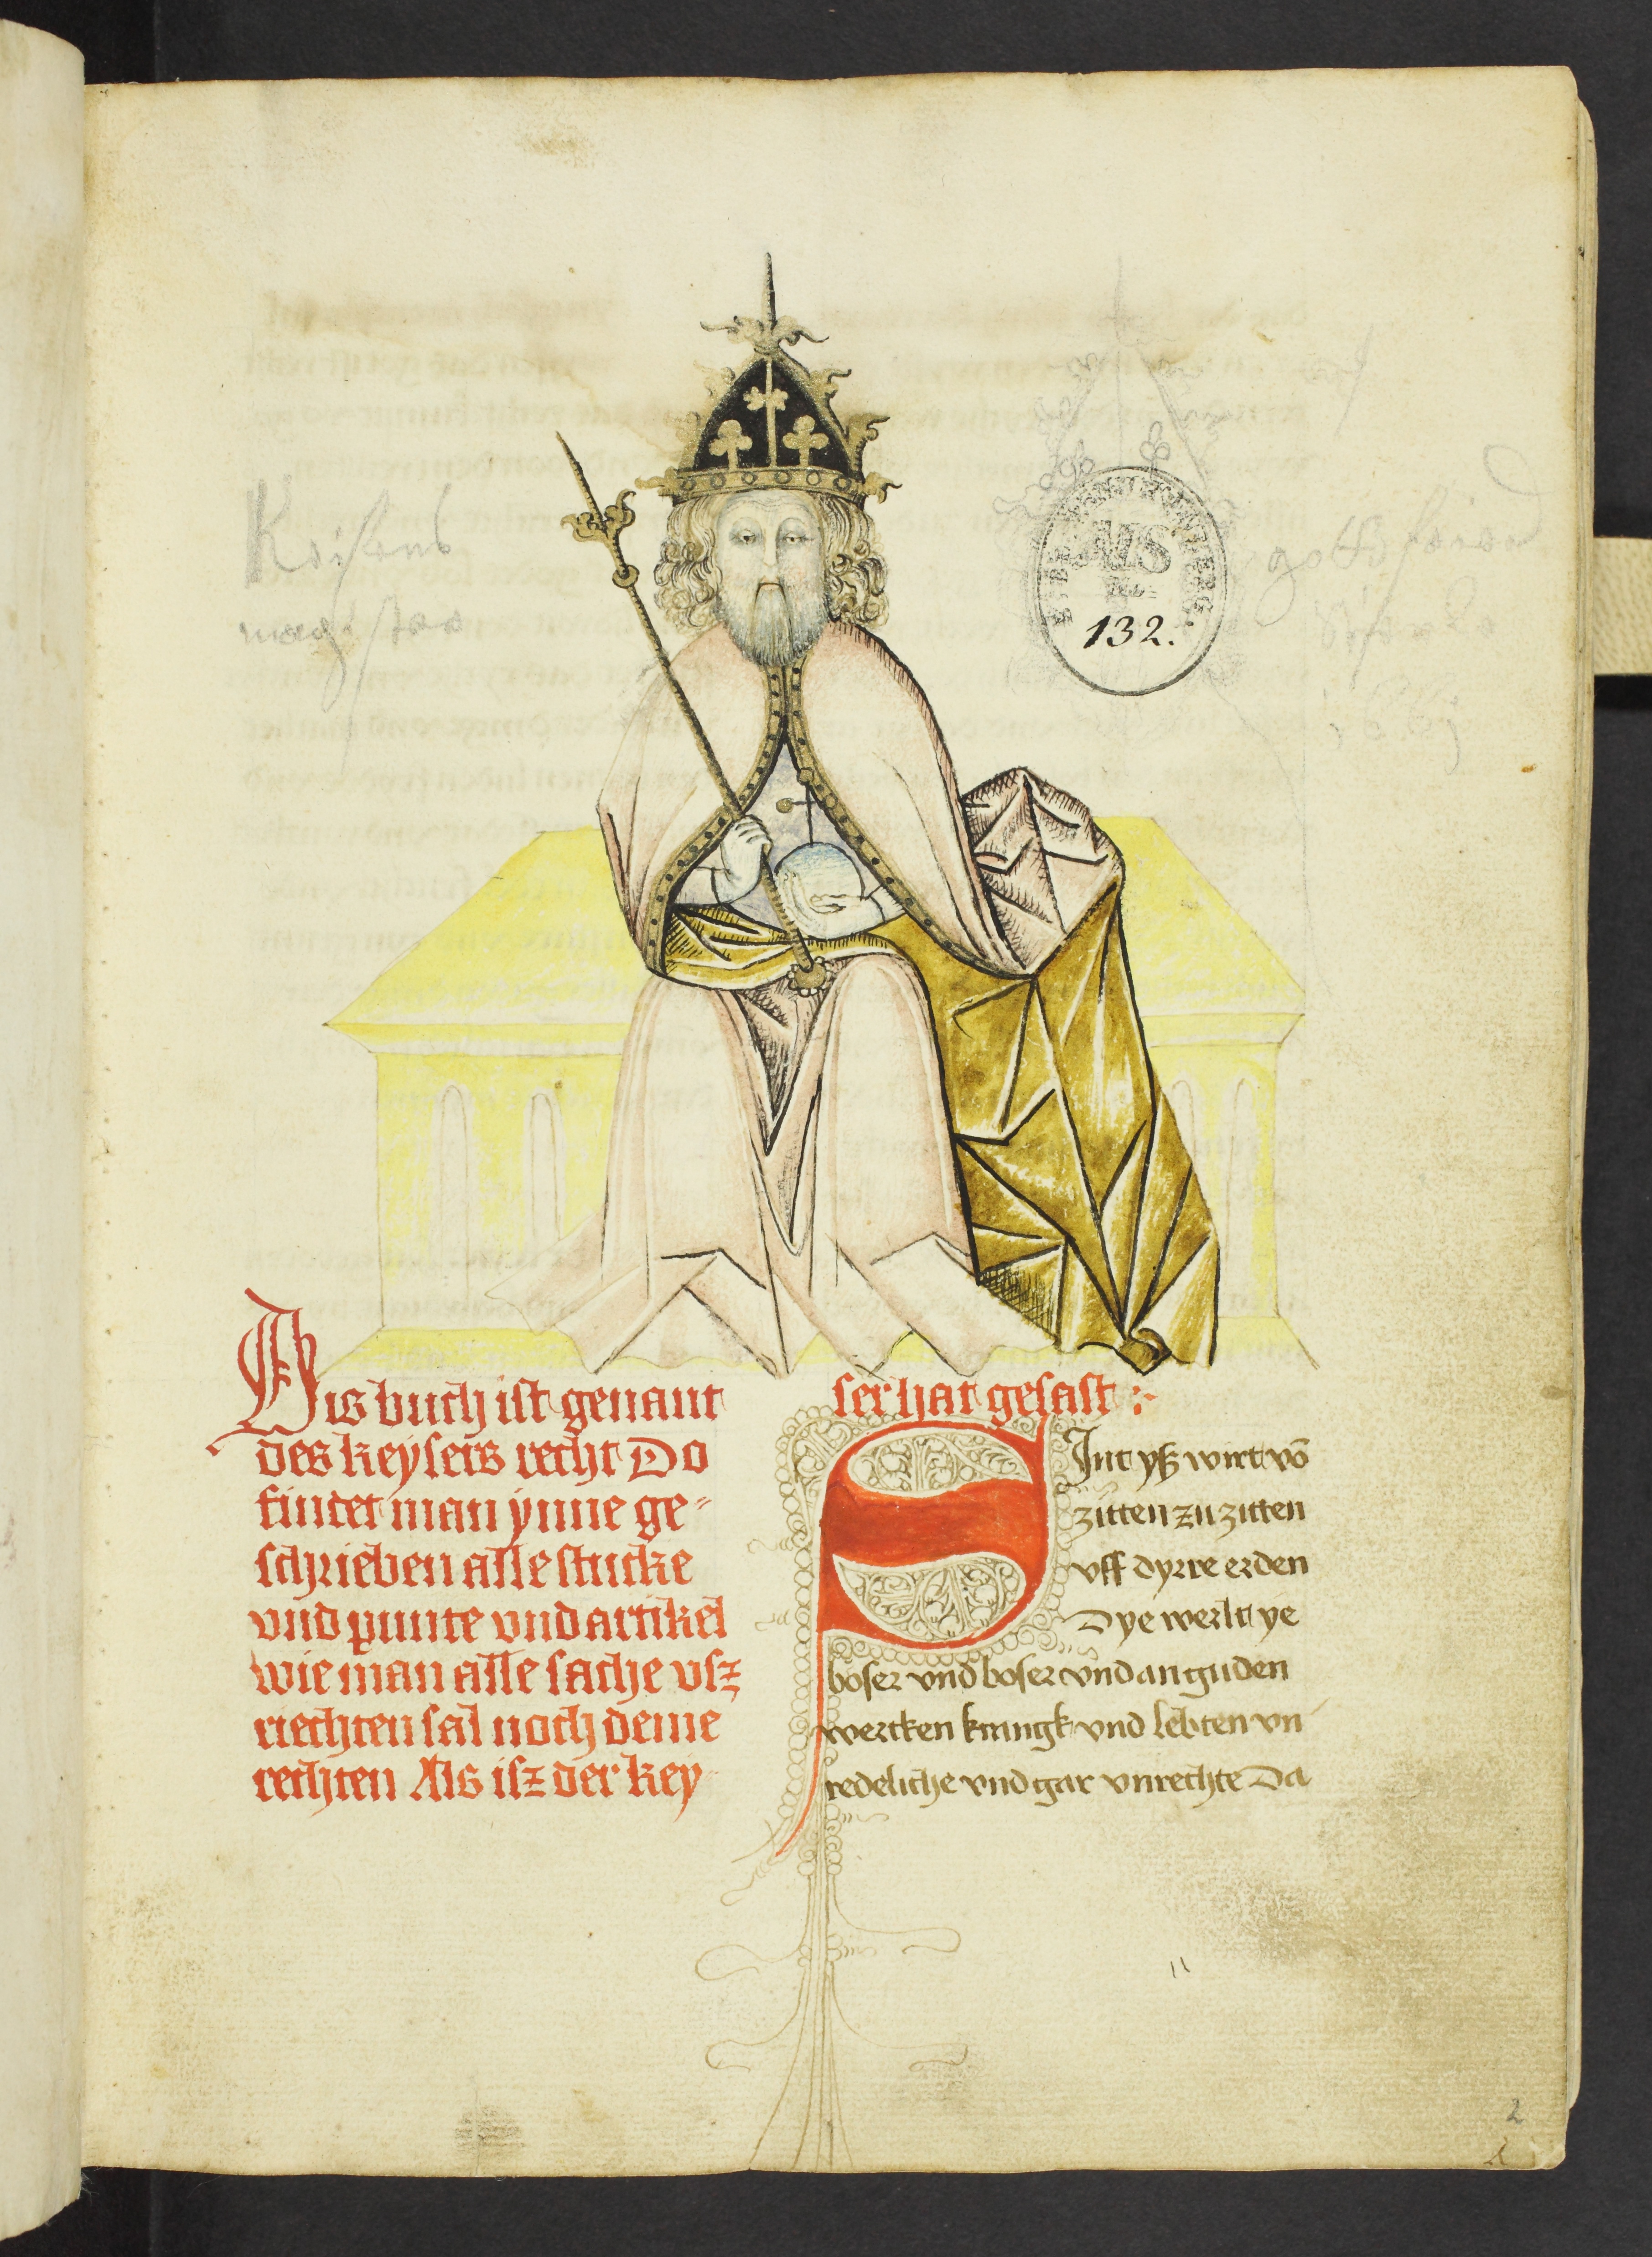 MS
132.
Dis buch ist genant
des keysers recht Do
findet man ynne ge=
schrieben alle stucke
vnd punte vnd artikel
wie man alle sache vsz
riechten sal noch deme
rechten Als isz der key
ser hat gesast :
SJnt yß wirt vō
zitten zu zitten
vff dyrre erden
Dye werlt ye
boser vnd boser vnd an guden
wercken kranck vnd lebten vn
redeliche vnd gar vnrechte Da
2